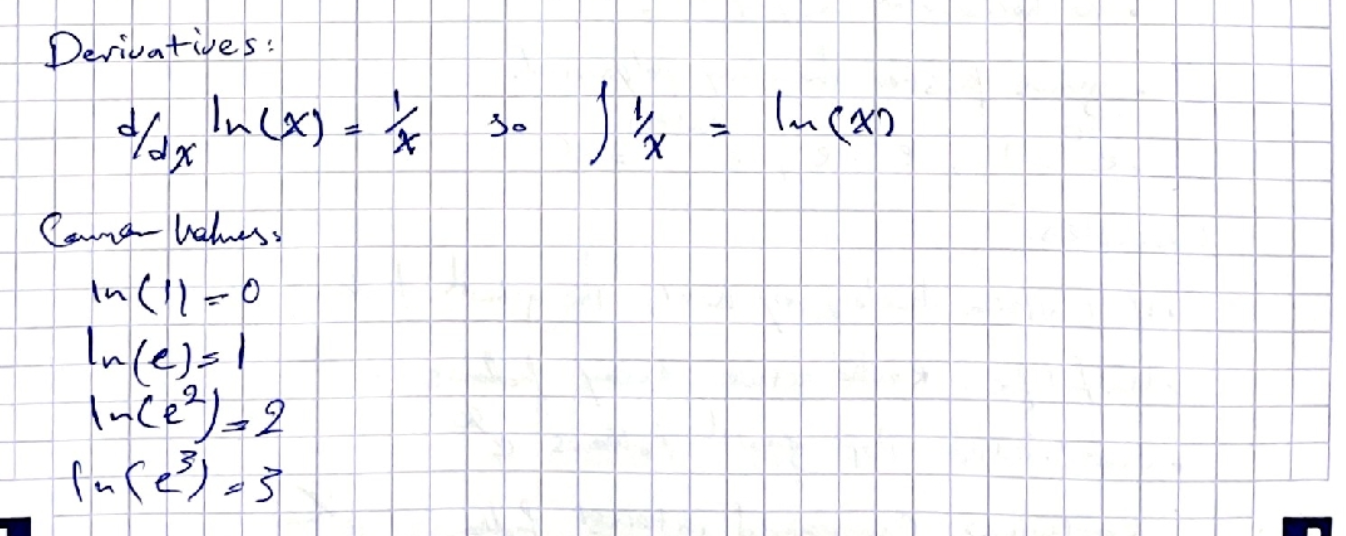 Derivatives:
d/dx ln(x) = 1/x so ∫ 1/x = ln(x)
Common Values:
ln(1) = 0
ln(e) = 1
ln(e²) = 2
ln(e³) = 3